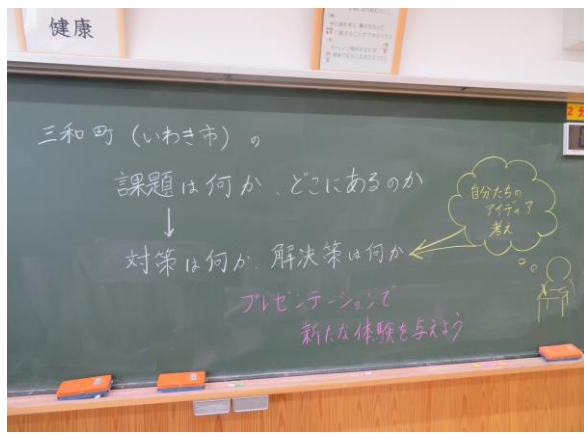 健康
三和町（いわき市）の
課題は何か、どこにあるのか
↓
対策は何か、解決策は何か
自分たちの
アイディア
考え
プレゼンテーションで
新たな体験を与えよう